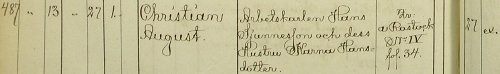 487 " 13 " 27 1. Christian August.
Arbetskarlen Hans
Sunnesson och dess
Hustru Karna Hans-
dotter.
Fr.
a Rastock
DN:o IV
fol. 34.
27 ex.